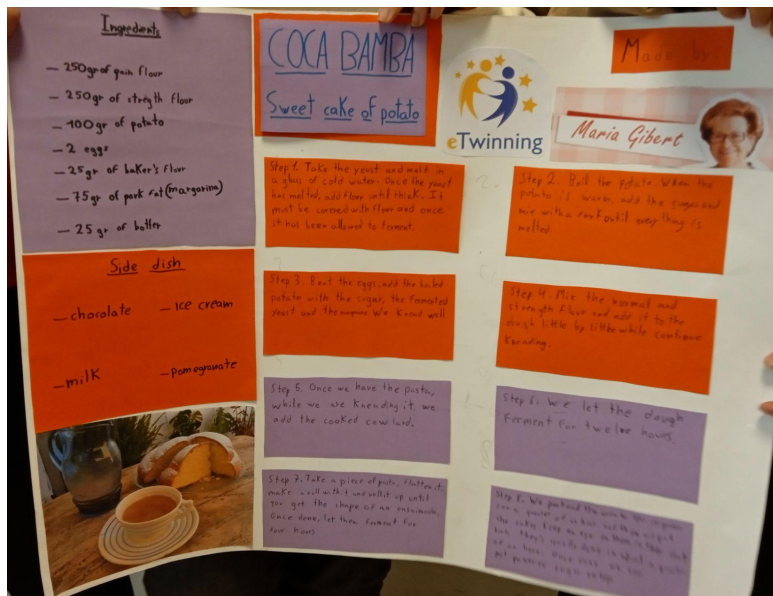 Ingredients
— 250gr of pain flour
— 250gr of stregth flour
— 100gr of potato
— 2 eggs
— 25gr of baker's flour
— 75gr of pork fat (margarina)
— 25gr of botter
Side dish
— chocolate
— ice cream
— milk
— pomegranate
COCA BAMBA
Sweet cake of potato
eTwinning
Made by:
Maria Gibert
Step 1. Take the yeast and melt in
a glass of cold water. Once the yeast
has melted, add floor until thick. It
must be covered with floor and once
it has been allowed to ferment.
Step 2. Boil the potato. When the
potato is warm, add the sugar and
mix with a fork until everything is
melted.
Step 3. Beat the eggs, add the boiled
potato with the sugar, the fermented
yeast and the We knead well
Step 4. Mix the normal and
strength flour and add it to the
dough little by little while continue
kneading.
Step 5. Once we have the pasta,
while we are kneading it, we
add the cooked cow lard.
Step 6. We let the dough
ferment for twelve hours.
Step 7. Take a piece of pasta, flatten it,
make a roll with it and roll it up until
you get the shape of an
Once done, let them ferment for
four hours
Step 8. We